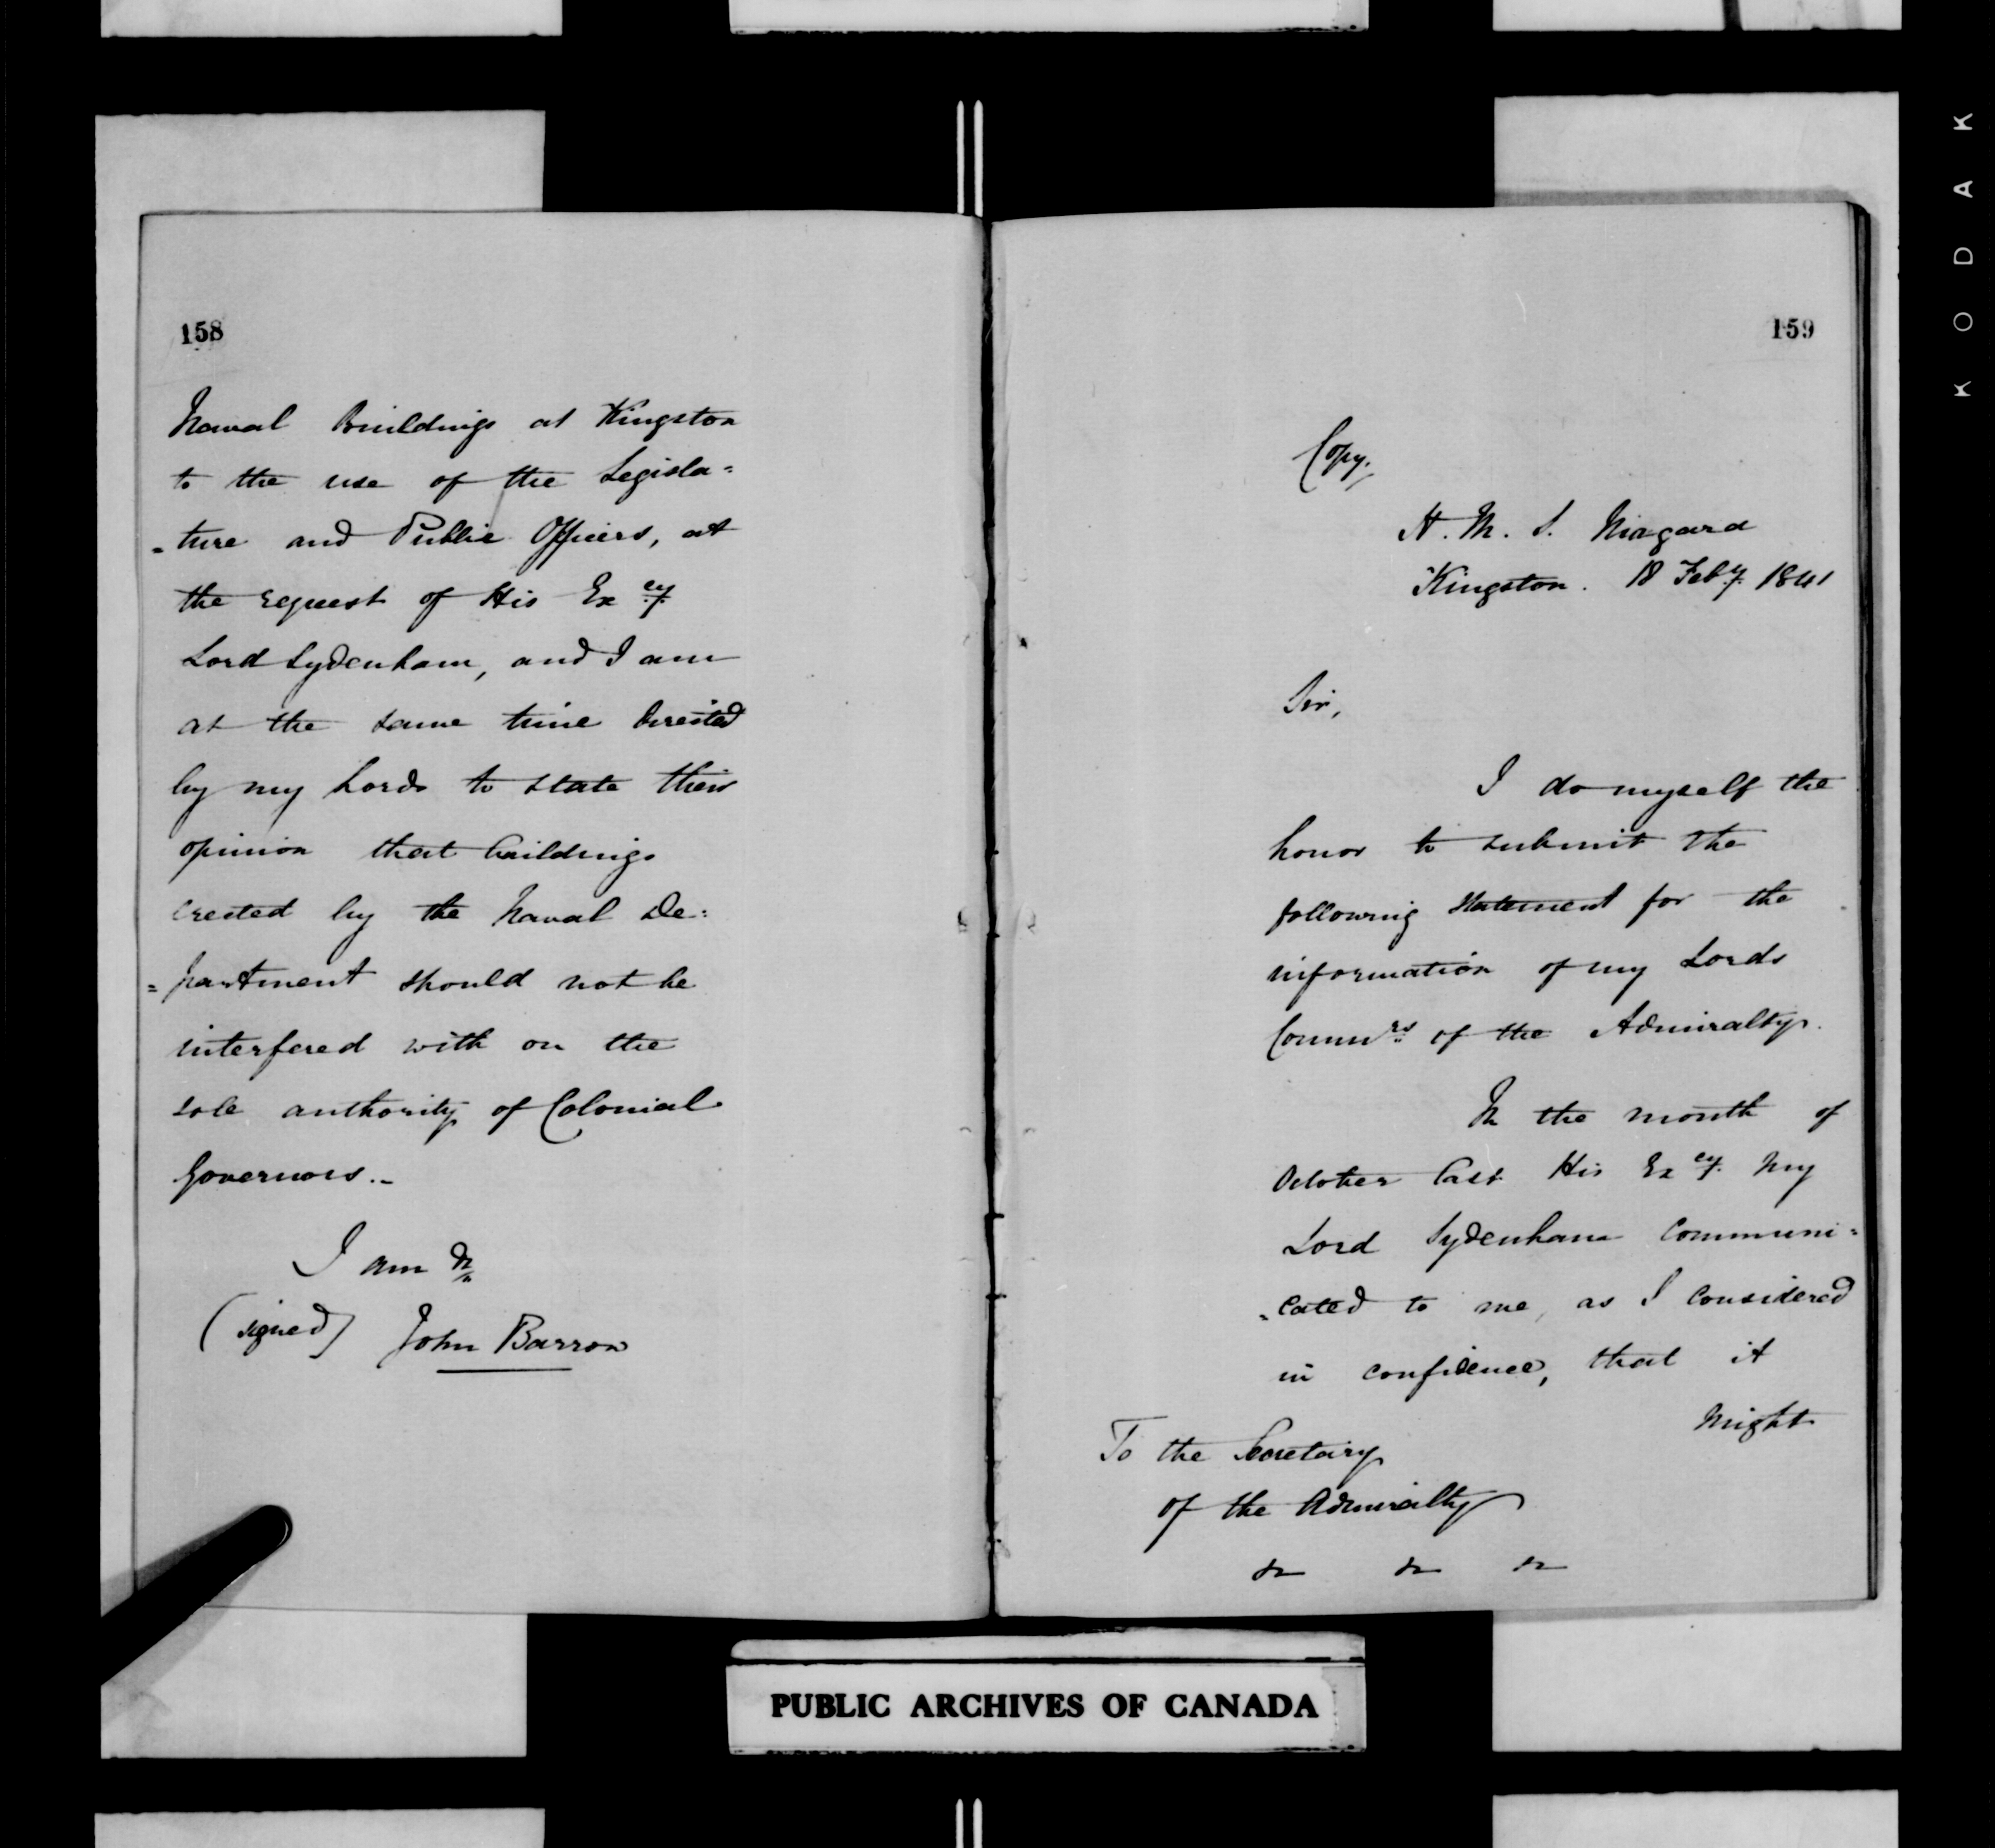 158
Naval Buildings at Kingston
to the use of the Legisla=
=ture and Public Officers, at
the request of His Excy.
Lord Sydenham, and I am
at the same time directed
by my Lords to state their
opinion that buildings
erected by the Naval De=
=partment should not be
interfered with on the
sole authority of Colonial
Governors.-
I am &c
(signed) John Barrow
159
Copy.
H. M. S. Niagara
Kingston. 18 Feby. 1841
Sir,
I do myself the
honor to submit the
following statement for the
information of my Lords
Commrs of the Admiralty.
In the month of
October last His Excy. My
Lord Sydenham communi=
=cated to me, as I considered
in confidence, that it
might
To the Secretary
of the Admiralty
&c &c &c
PUBLIC ARCHIVES OF CANADA
KODAK